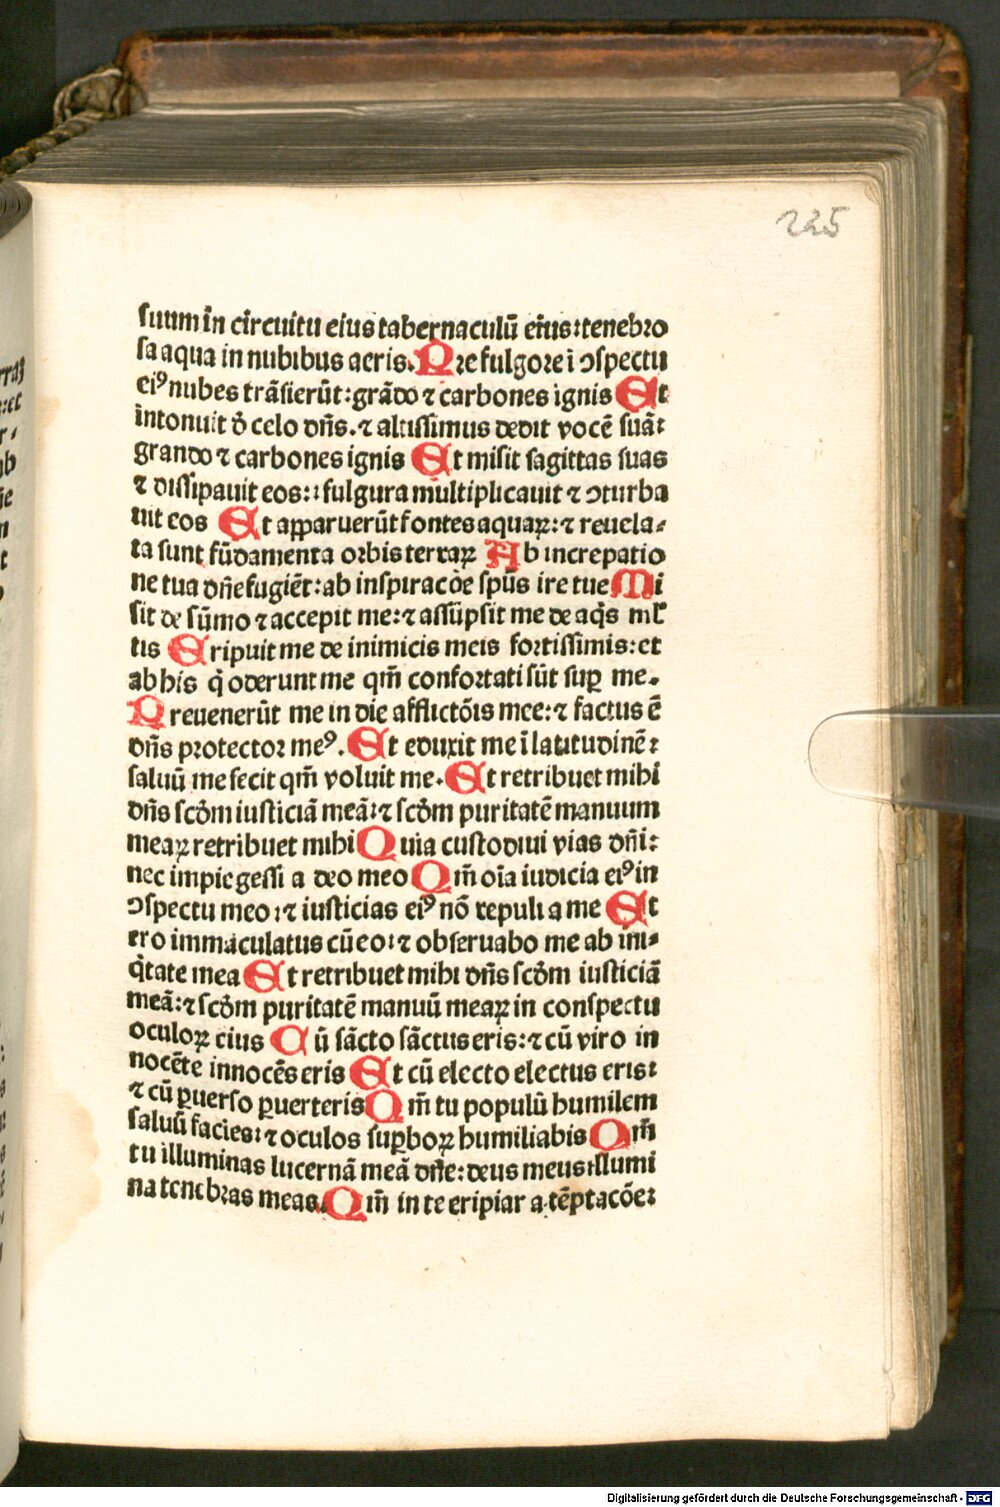 225
suum in circuitu eius tabernaculū eius: tenebro
sa aqua in nubibus aeris. Pre fulgore ī ↄspectu
eiꝰ nubes trāsierūt: grādo ⁊ carbones ignis Et
intonuit d̓ celo dn̄s. ⁊ altissimus dedit vocē suā:
grando ⁊ carbones ignis Et misit sagittas suas
⁊ dissipauit eos: fulgura multiplicauit ⁊ ↄturba
uit eos Et apparuerūt fontes aquaꝝ: ⁊ reuela-
ta sunt fūdamenta orbis terraꝝ Ab increpatio
ne tua dn̄e fugiēt: ab inspiracōe spūs ire tue Mi
sit de sūmo ⁊ accepit me: ⁊ assūpsit me de aq̄s ml̄
tis Eripuit me de inimicis meis fortissimis: et
ab his q̓ oderunt me qm̄ confortati sūt suꝑ me.
Preuenerūt me in die afflictōis mee: ⁊ factus ē
dn̄s protector meꝰ. Et eduxit me ī latitudinē:
saluū me fecit qm̄ voluit me. Et retribuet mihi
dn̄s scd̓m iusticiā meā: ⁊ scd̓m puritatē manuum
meaꝝ retribuet mihi Quia custodiui vias dn̄i:
nec impie gessi a deo meo Qm̄ oīa iudicia eiꝰ in
ↄspectu meo: ⁊ iusticias eiꝰ nō repuli a me Et
ero immaculatus cū eo: ⁊ obseruabo me ab ini-
q̓tate mea Et retribuet mihi dn̄s scd̓m iusticiā
meā: ⁊ scd̓m puritatē manuū meaꝝ in conspectu
oculoꝝ eius Cū sācto sāctus eris: ⁊ cū viro in
nocēte innocēs eris Et cū electo electus eris:
⁊ cū ꝑuerso ꝑuerteris Qm̄ tu populū humilem
saluū facies: ⁊ oculos suꝑboꝝ humiliabis Qm̄
tu illuminas lucernā meā dn̄e: deus meus illumi
na tenebras meas. Qm̄ in te eripiar a tēptacōe:
Digitalisierung gefördert durch die Deutsche Forschungsgemeinschaft - DFG